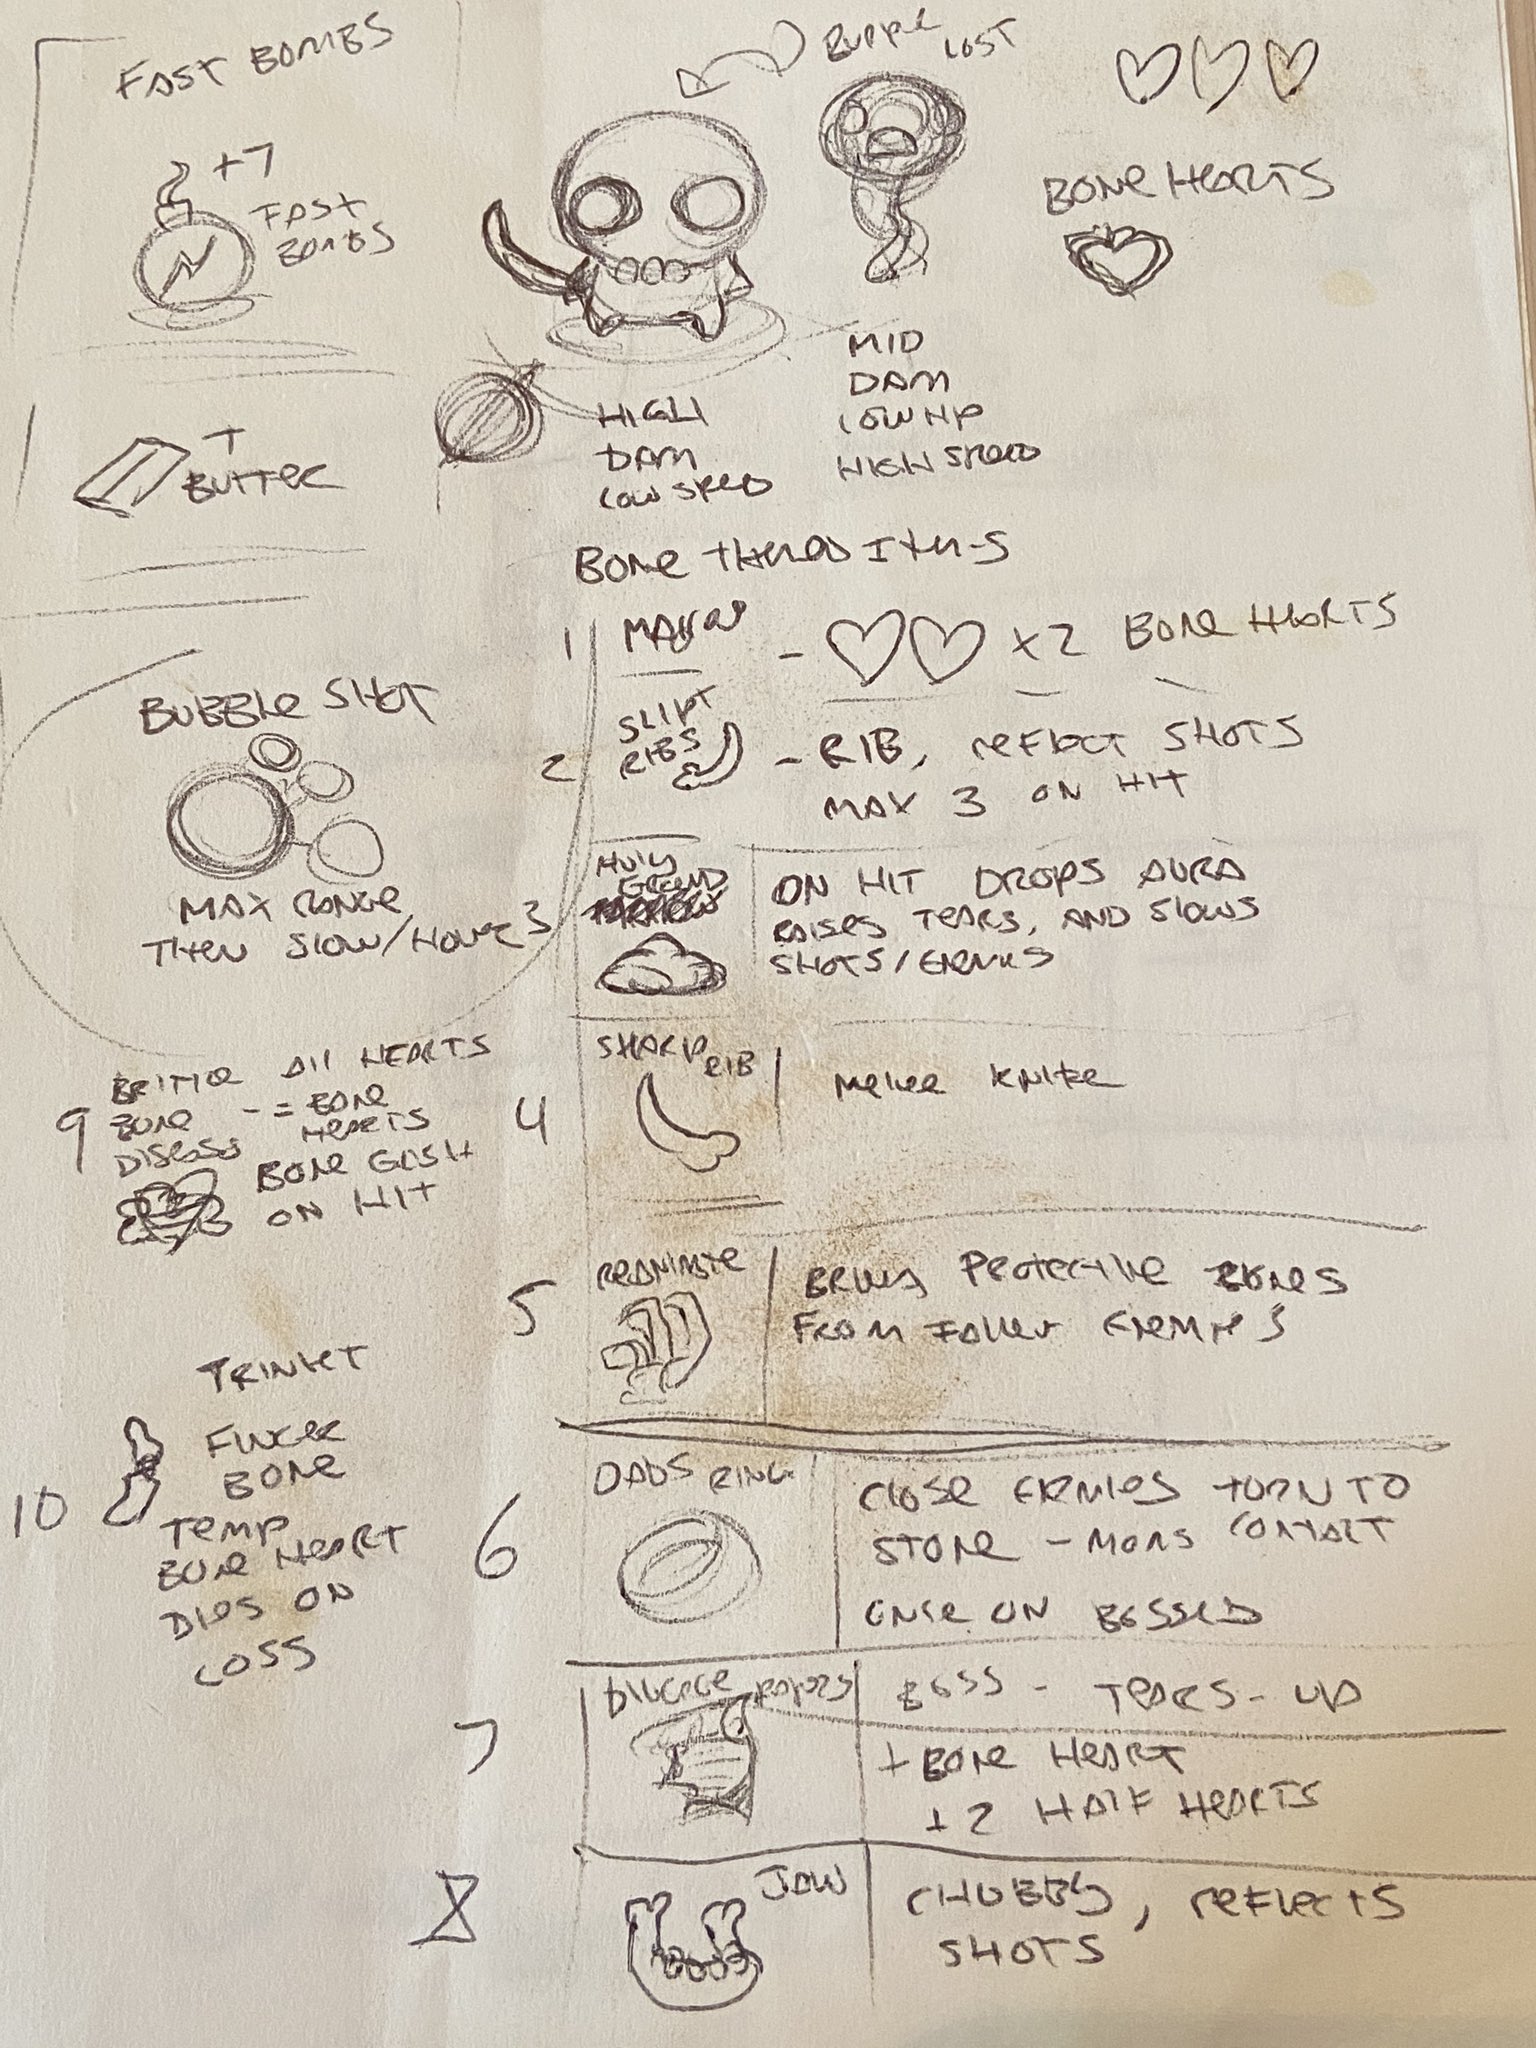 FAST BOMBS
+7
FAST
BOMBS
T
BUTTER
LOST
BONE HEARTS
HIGH
DAM
LOW SPEED
MID
DAM
LOW HP
HIGH SPEED
BONE THEMED ITEMS
1 MARROW - x2 BONE HEARTS
2 SLIPT
RIBS - RIB, REFLECT SHOTS
MAX 3 ON HIT
3 HOLY
GROUND
ON HIT DROPS AURA
RAISES TEARS, AND SLOWS
SHOTS/ENEMIES
4 SHARP RIB
MELEE KNIFE
5 REANIMATE
BRING PROTECTIVE BONES
FROM FALLEN ENEMIES
6 DADS RING
CLOSE ENEMIES TURN TO
STONE - MOMS CONTACT
ONCE ON BOSSES
7 DIVORCE PAPERS
BOSS - TEARS - UP
+ BONE HEART
+2 HALF HEARTS
8 JAW
CHUBBY, REFLECTS
SHOTS
BUBBLE SHOT
MAX RANGE
THEN SLOW/HOME
9 BRITTLE
BONE
DISEASE
ALL HEARTS
- = BONE
HEARTS
BONE GUSH
ON HIT
TRINKET
10 FINGER
BONE
TEMP
BONE HEART
DIES ON
LOSS